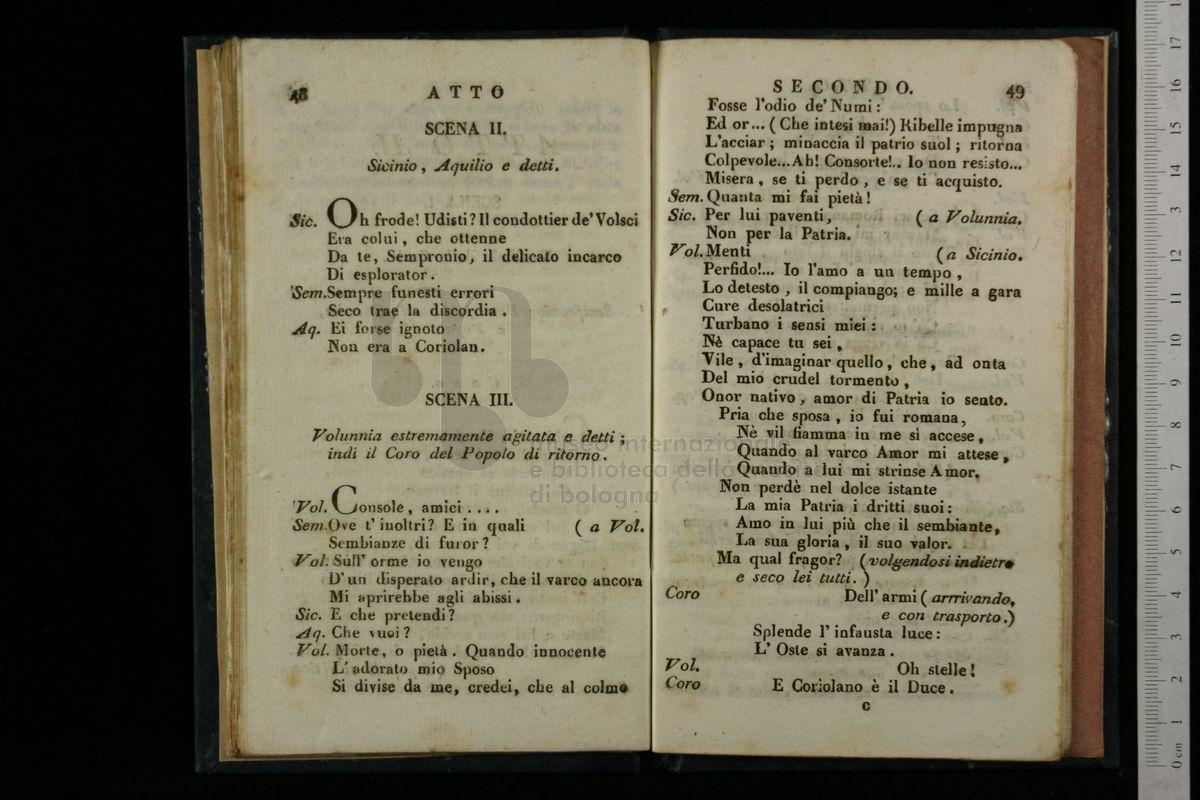 48 ATTO
SCENA II.
Sicinio, Aquilio e detti.
Sic. Oh frode! Udisti? Il condottier de' Volsci
Era colui, che ottenne
Da te, Sempronio, il delicato incarco
Di esplorator.
Sem. Sempre funesti errori
Seco trae la discordia.
Aq. Ei forse ignoto
Non era a Coriolan.
SCENA III.
Volunnia estremamente agitata e detti;
indi il Coro del Popolo di ritorno.
Vol. Console, amici....
Sem. Ove t' inoltri? E in quali (a Vol.
Sembianze di furor?
Vol. Sull' orme io vengo
D' un disperato ardir, che il varco ancora
Mi aprirebbe agli abissi.
Sic. E che pretendi?
Aq. Che vuoi?
Vol. Morte, o pietà. Quando innocente
L' adorato mio Sposo
Si divise da me, credei, che al colmo
SECONDO. 49
Fosse l'odio de' Numi:
Ed or... (Che intesi mai!) Ribelle impugna
L'acciar; minaccia il patrio suol; ritorna
Colpevole... Ah! Consorte!.. Io non resisto...
Misera, se ti perdo, e se ti acquisto.
Sem. Quanta mi fai pietà!
Sic. Per lui paventi, (a Volunnia.
Non per la Patria.
Vol. Menti (a Sicinio.
Perfido!... Io l'amo a un tempo,
Lo detesto, il compiango; e mille a gara
Cure desolatrici
Turbano i sensi miei:
Nè capace tu sei,
Vile, d'imaginar quello, che, ad onta
Del mio crudel tormento,
Onor nativo, amor di Patria io sento.
Pria che sposa, io fui romana,
Nè vil fiamma in me si accese,
Quando al varco Amor mi attese,
Quando a lui mi strinse Amor.
Non perdè nel dolce istante
La mia Patria i dritti suoi:
Amo in lui più che il sembiante,
La sua gloria, il suo valor.
Ma qual fragor? (volgendosi indietro
e seco lei tutti.)
Coro Dell' armi (arrrivando,
e con trasporto.)
Splende l' infausta luce:
L' Oste si avanza.
Vol. Oh stelle!
Coro E Coriolano è il Duce.
C
museo internazionale
e biblioteca della
di bologna
0 cm 1 2 3 4 5 6 7 8 9 10 11 12 13 14 15 16 17